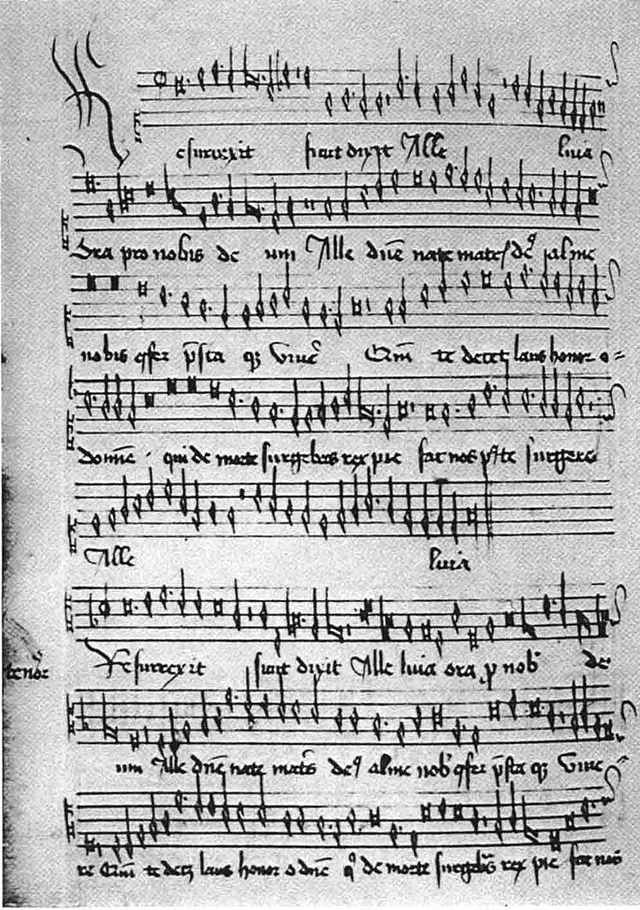 esurrexit sicut dixit Alle luia
Ora pro nobis de um Alle dñe nate mate de alme
nobis qfer psta q vive Cum te decet laus honor o=
domine qui de morte surgebas rex pie fac nos pste surgere
Alle luia
tenor Resurrexit sicut dixit Alle luia ora p nob de
um Alle dñe nate mats de alme nob qfer psta q vive
re Cum te decet laus honor o dñe q de morte surgebas rex pie fac nos